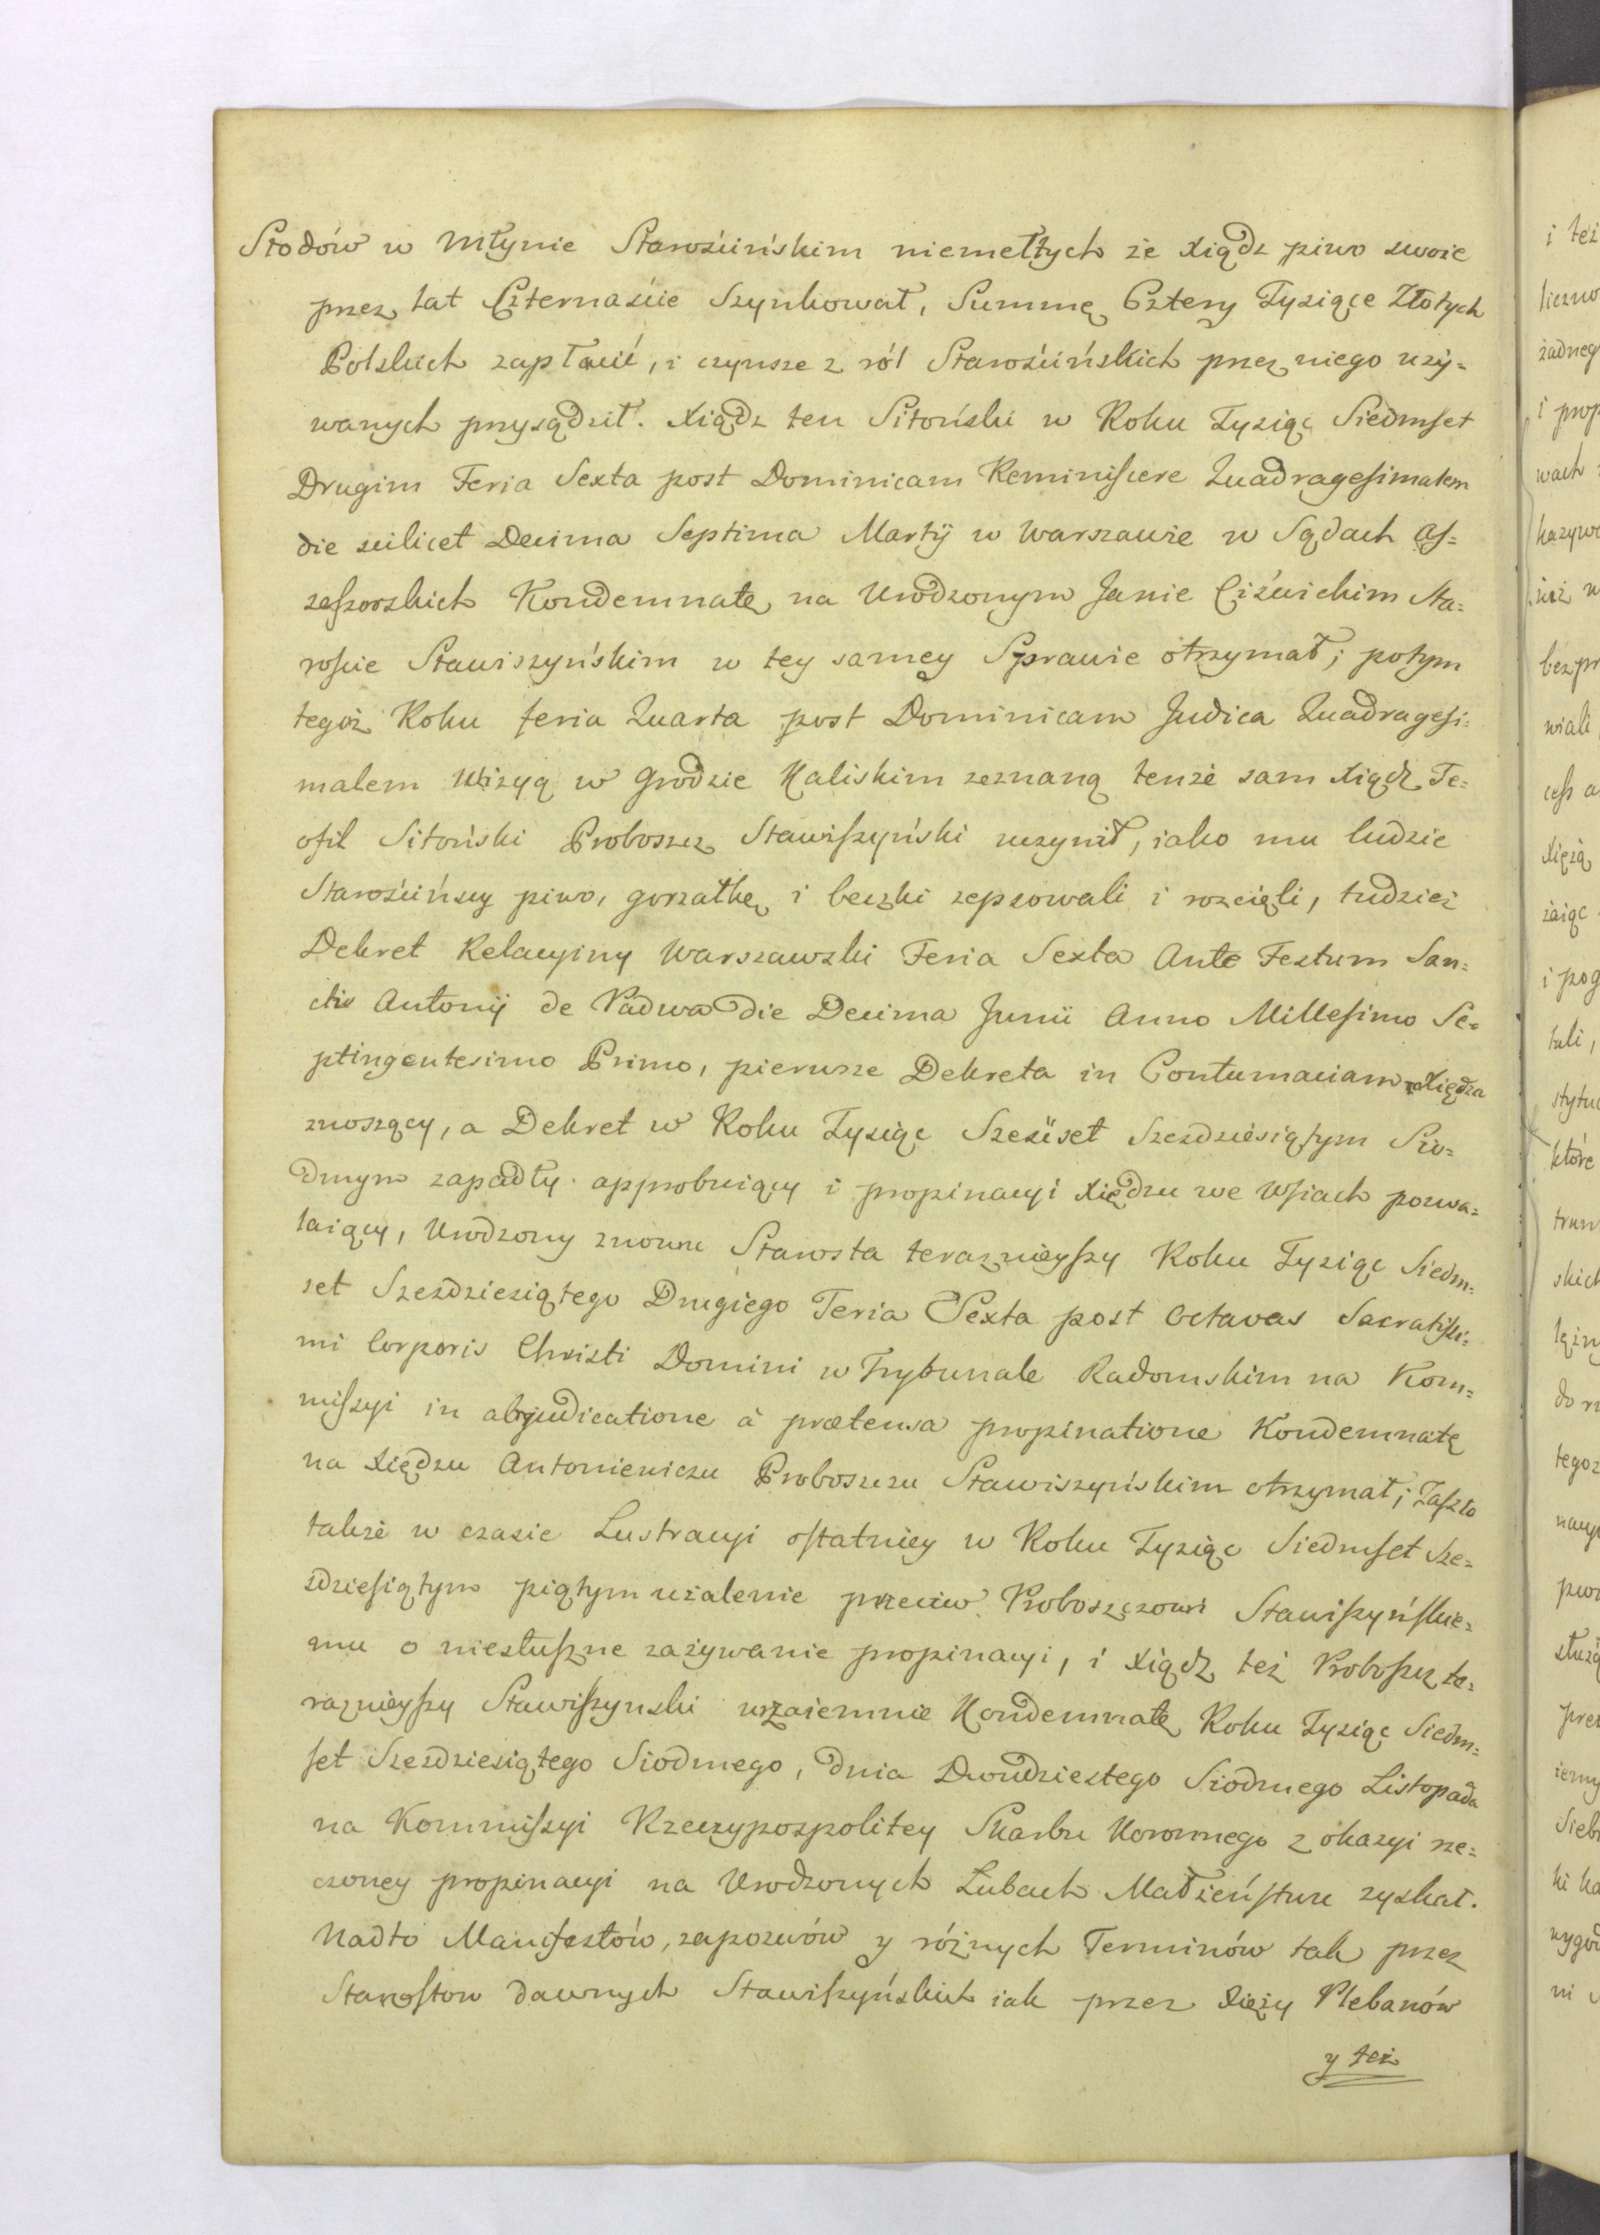 Słodów w Młynie Starościńskim niemełtych że Xiądz piwo swoie
przez lat Czternaście Szynkował, Summę Cztery Tysiące Złotych
Polskich zapłacić, i czynsze z ról Starościńskich przez niego uży=
wanych przysądził. Xiądz ten Sitoński w Roku Tysiąc Siedmset
Drugim Feria Sexta post Dominicam Reminiscere Quadragesimalem
die scilicet Decima Septima Martij w Warszawie w Sądach As=
sessorskich Kondemnatę na Urodzonym Janie Ciświckim Sta=
roście Stawiszyńskim w tey samey Sprawie otrzymał; potym
tegoż Roku feria Quarta post Dominicam Judica Quadragesi=
malem Wizyą w Grodzie Kaliskim zeznaną tenże sam Xiądz Te=
ofil Sitoński Proboszcz Stawiszyński uczynił, iako mu ludzie
Starościńscy piwo, gorzałkę i beczki zepsowali i rozcięli, tudzież
Dekret Relacyiny Warszawski Feria Sexta Ante Festum San=
cti Antonij de Padwa die Decima Junii Anno Millesimo Se=
ptingentesimo Primo, pierwsze Dekreta in Contumaciam Xiędza
znoszący, a Dekret w Roku Tysiąc Sześćset Sześdziesiątym Sio=
dmym zapadły approbuiący i propinacyi Xiędzu we Wsiach pozwa=
laiący, Urodzony znowu Starosta teraznieyszy Roku Tysiąc Siedm=
set Sześdziesiątego Drugiego Feria Sexta post Octavas Sacratissi=
mi Corporis Christi Domini w Trybunale Radomskim na Kom=
missyi in abjudicatione à prætensa propinatione Kondemnatę
na Xiędzu Antoniewiczu Proboszczu Stawiszyńskim otrzymał; Zaszło
także w czasie Lustracyi ostatniey w Roku Tysiąc Siedmset Sze=
śdziesiątym piątym użalenie przeciw Proboszczowi Stawiszyńskie=
mu o niesłuszne zażywanie propinacyi, i Xiądz też Proboszcz te=
raznieyszy Stawiszynski wzaiemnie Kondemnatę Roku Tysiąc Siedm=
set Sześdziesiątego Siodmego, dnia Dwudziestego Siodmego Listopada
na Kommissyi Rzeczypospolitey Skarbu Koronnego z okazyi rze=
czoney propinacyi na Urodzonych Lubach Małżeństwu zyskał.
Nadto Manifestów, zapozwów y różnych Terminów tak przez
Starostow dawnych Stawiszyńskich iak przez Xięży Plebanów
y też